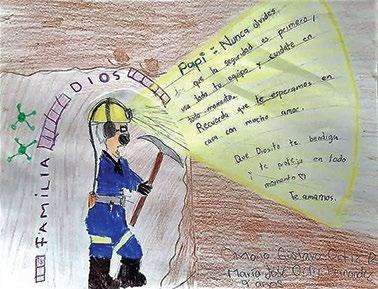 DIOS
FAMILIA
Papi = Nunca olvides
que la seguridad es primero,
usa todo tu equipo y cuidate en
todo momento.
Recuerda que te esperamos en
casa con mucho amor.
Que Diosito te bendiga
y te proteja en todo
momento
Te amamos.
Gustavo Ortiz
María José Ortiz
9 años